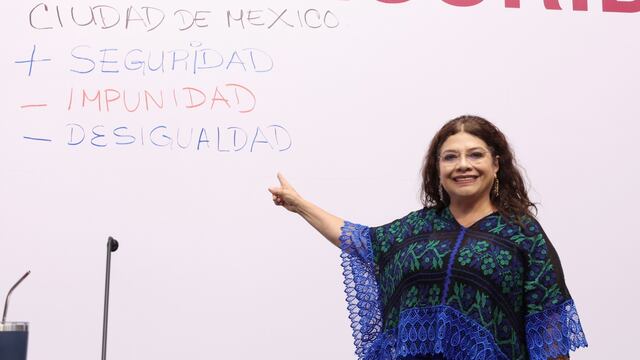 CIUDAD DE MÉXICO
+ SEGURIDAD
- IMPUNIDAD
- DESIGUALDAD